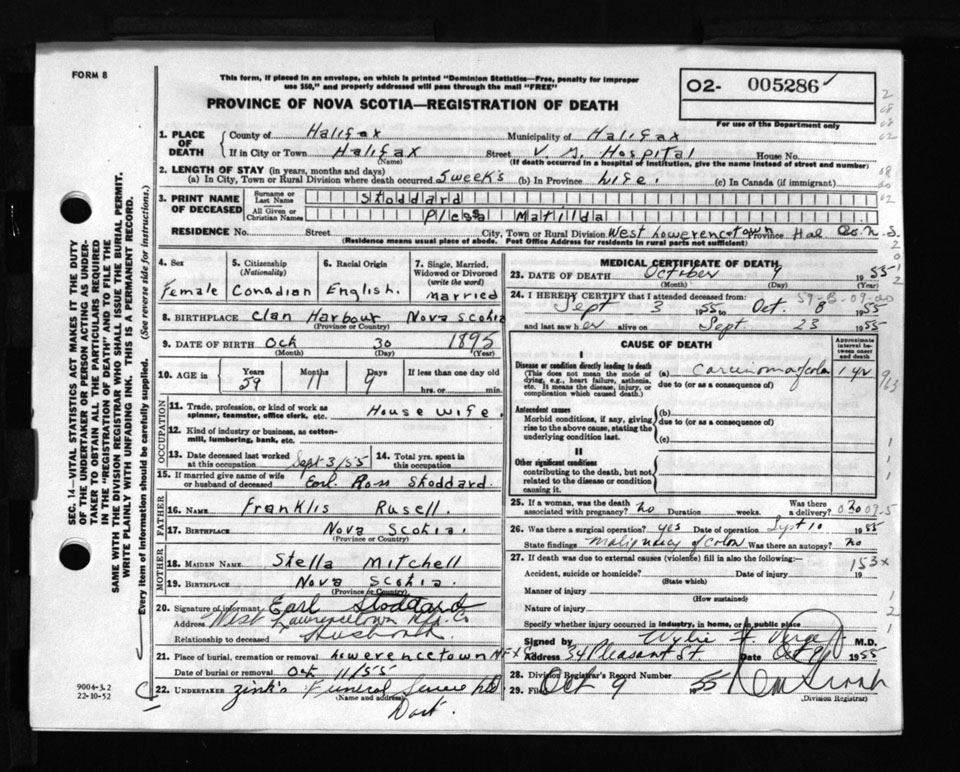 FORM 8
This form, if placed in an envelope, on which is printed "Dominion Statistics—Free, penalty for improper
use $50," and properly addressed will pass through the mail "FREE"
PROVINCE OF NOVA SCOTIA—REGISTRATION OF DEATH
O2- 005286
For use of the Department only
SEC. 14—VITAL STATISTICS ACT MAKES IT THE DUTY
OF THE UNDERTAKER OR PERSON ACTING AS UNDER-
TAKER TO OBTAIN ALL THE PARTICULARS REQUIRED
IN THE "REGISTRATION OF DEATH" AND TO FILE THE
SAME WITH THE DIVISION REGISTRAR WHO SHALL ISSUE THE BURIAL PERMIT.
WRITE PLAINLY WITH UNFADING INK. THIS IS A PERMANENT RECORD.
Every item of information should be carefully supplied. (See reverse side for instructions.)
1. PLACE OF DEATH County of Halifax Municipality of Halifax
If in City or Town Halifax Street V. G. Hospital House No.
(Name) (If death occurred in a hospital or institution, give the name instead of street and number)
2. LENGTH OF STAY (in years, months and days)
(a) In City, Town or Rural Division where death occurred 5 weeks (b) In Province Life. (c) In Canada (if immigrant)
3. PRINT NAME OF DECEASED Surname or Last Name Stoddard
All Given or Christian Names Plessa Matilda
RESIDENCE No. Street City, Town or Rural Division West Lowerencetown Province Hal Co. N.S.
(Residence means usual place of abode. Post Office Address for residents in rural parts not sufficient)
4. Sex Female
5. Citizenship (Nationality) Conadian
6. Racial Origin English.
7. Single, Married, Widowed or Divorced (write the word) Married
8. BIRTHPLACE Clan Harbour Nova Scotia
(Province or Country)
9. DATE OF BIRTH Oct 30 1895
(Month) (Day) (Year)
10. AGE in Years 59 Months 11 Days 9 If less than one day old hrs. or min.
OCCUPATION
11. Trade, profession, or kind of work as spinner, teamster, office clerk, etc. House wife.
12. Kind of industry or business, as cotton-mill, lumbering, bank, etc.
13. Date deceased last worked at this occupation Sept 3/55 14. Total yrs. spent in this occupation
15. If married give name of wife or husband of deceased Earl Ross Stoddard.
FATHER
16. NAME Franklis Rusell.
17. BIRTHPLACE Nova Scotia.
(Province or Country)
MOTHER
18. MAIDEN NAME Stella Mitchell
19. BIRTHPLACE Nova Scotia.
(Province or Country)
20. Signature of informant Earl Stoddard
Address West Lawrencetown Hfx. Co
Relationship to deceased Husband
21. Place of burial, cremation or removal Lowerencetown HFX Co
Date of burial or removal Oct 11/55
22. UNDERTAKER Zink's Funeral Service Ltd
(Name and address)
Dart.
9004-3.2
22-10-52
MEDICAL CERTIFICATE OF DEATH
23. DATE OF DEATH October 9 1955
(Month) (Day) (Year)
24. I HEREBY CERTIFY that I attended deceased from:
Sept 3 1955 to Oct. 8 1955
and last saw her alive on Sept 23 1955
CAUSE OF DEATH
Approximate interval between onset and death
I
Disease or condition directly leading to death (This does not mean the mode of dying, e.g., heart failure, asthenia, etc. It means the disease, injury, or complication which caused death.)
(a) Carcinoma of colon 1 yr
due to (or as a consequence of)
Antecedent causes
Morbid conditions, if any, giving rise to the above cause, stating the underlying condition last.
(b)
due to (or as a consequence of)
(c)
II
Other significant conditions contributing to the death, but not related to the disease or condition causing it.
25. If a woman, was the death associated with pregnancy? no Duration weeks. Was there a delivery?
26. Was there a surgical operation? yes Date of operation Sept 10 1955
State findings Malignancy of Colon Was there an autopsy? no
27. If death was due to external causes (violence) fill in also the following:— 153x
Accident, suicide or homicide? Date of injury 19
(State which)
Manner of injury
(How sustained)
Nature of injury
Specify whether injury occurred in industry, in home, or in public place
Signed by M.D.
Address 34 Pleasant St. Date Oct 9 1955
28. Division Registrar's Record Number
29. Filed Oct 9 1955
(Division Registrar)